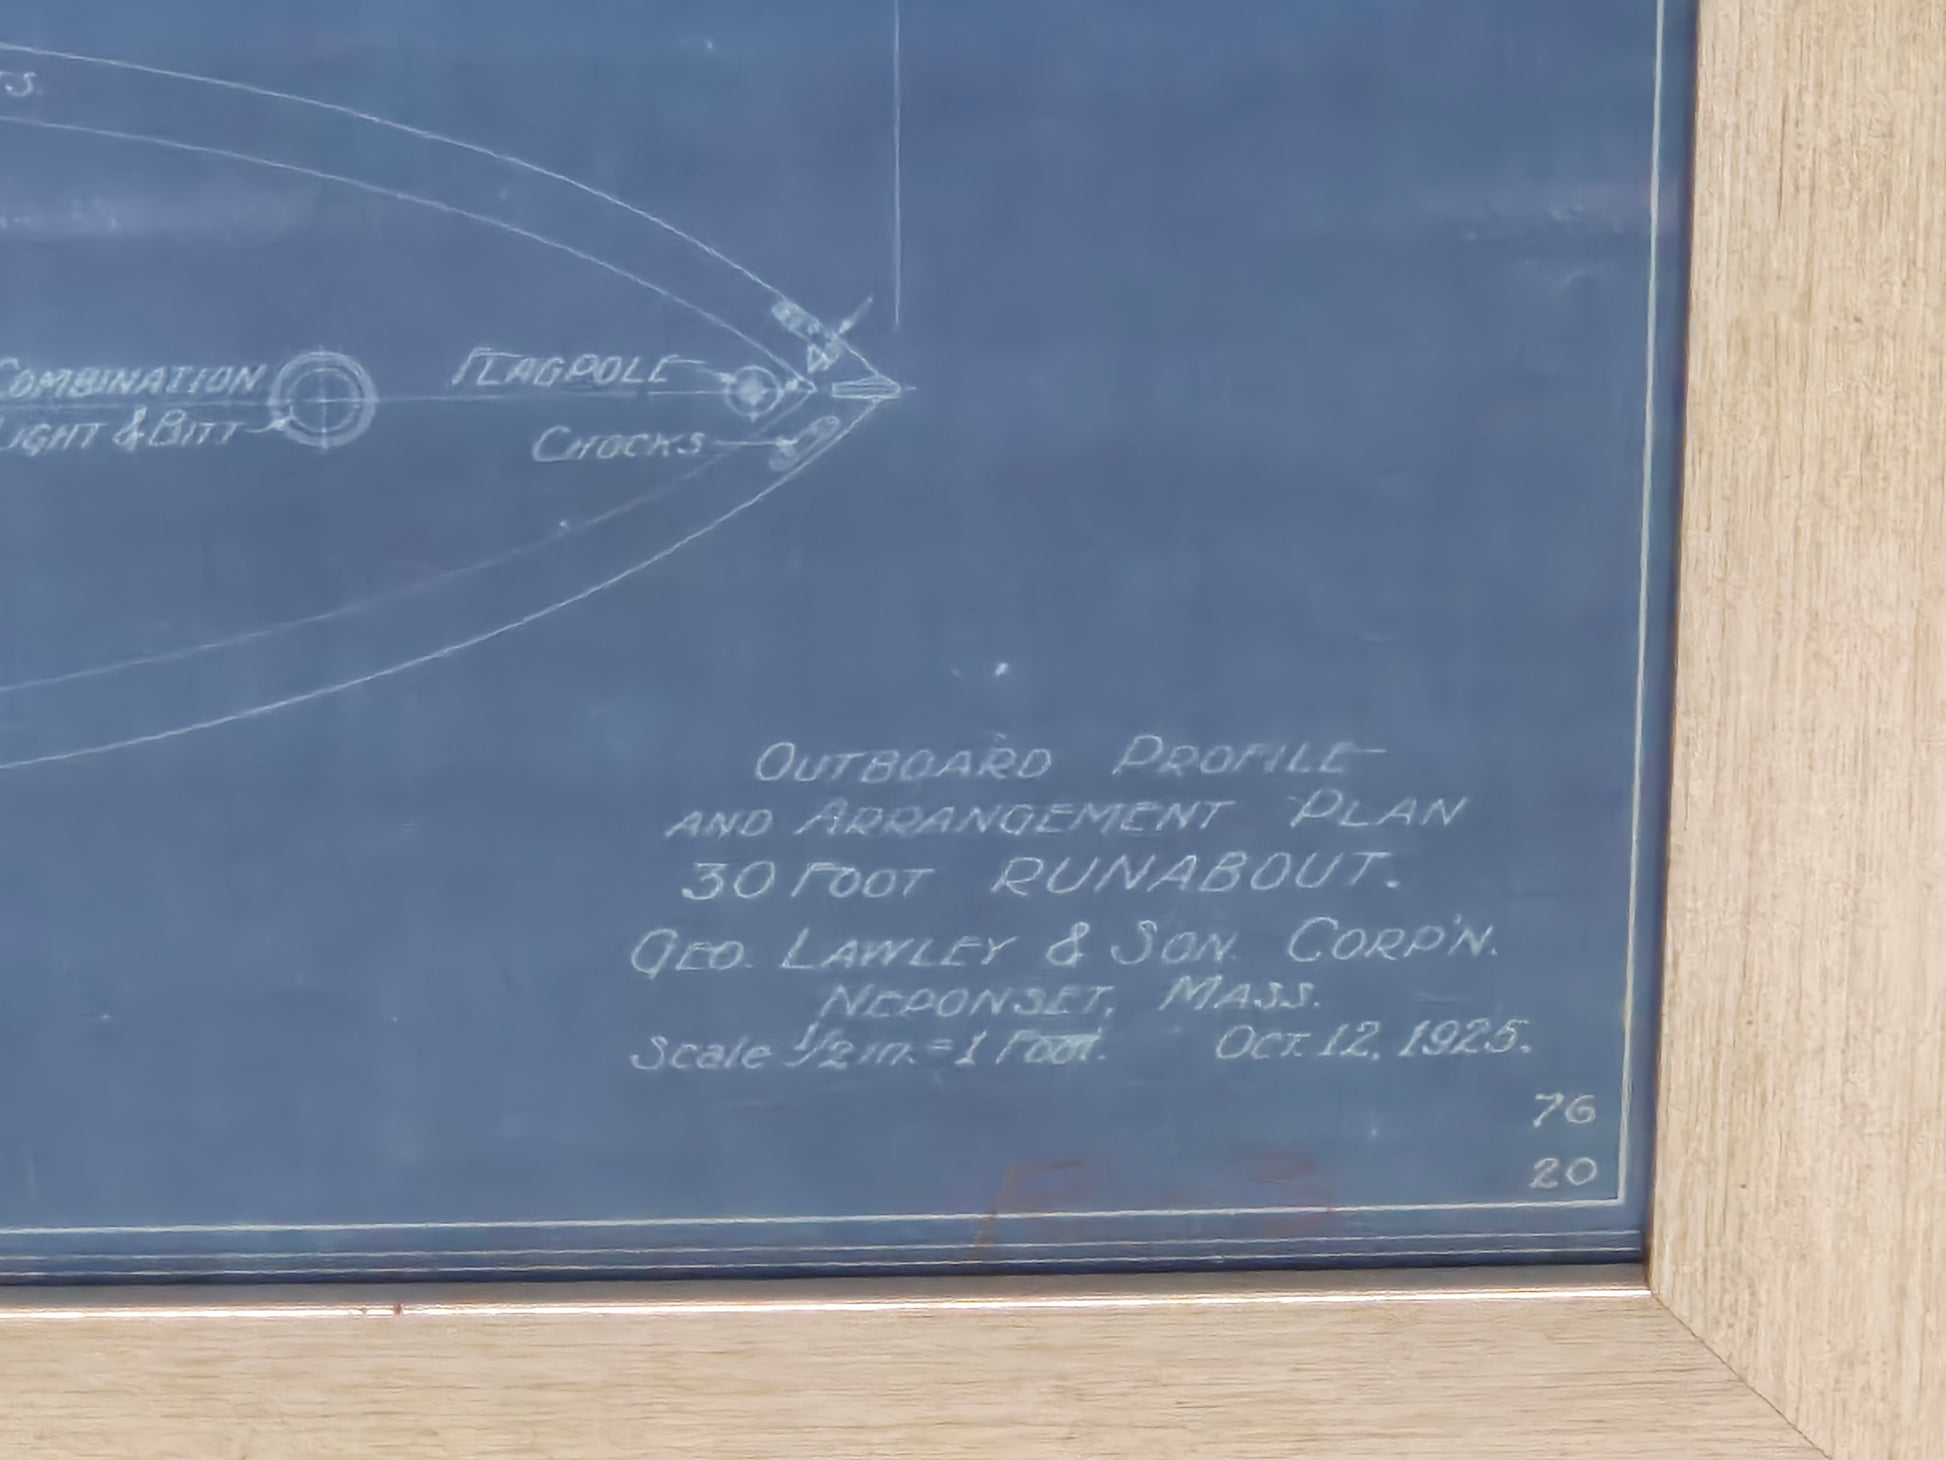 TS
COMBINATION
LIGHT & BITT
FLAGPOLE
CHOCKS
OUTBOARD PROFILE
AND ARRANGEMENT PLAN
30 FOOT RUNABOUT.
GEO. LAWLEY & SON CORP'N.
NEPONSET, MASS.
Scale 1/2 in. = 1 Foot. OCT. 12, 1925.
76
20